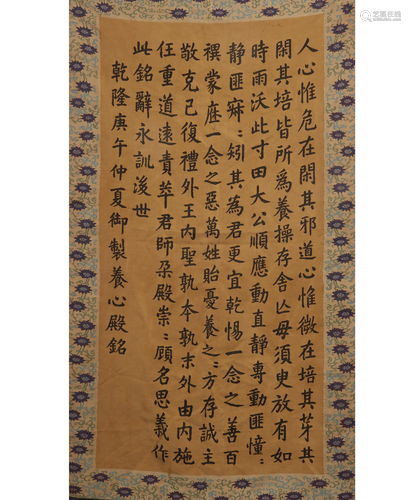 人心惟危在閑其邪道心惟微在培其芽其
閑其培皆所爲養操存舍亾毋須臾放有如
時雨沃此寸田大公順應動直靜專動匪憧〻
靜匪寐〻矧其為君更宜乾惕一念之善百
禩蒙庥一念之惡萬姓貽憂養之〻方存誠主
敬克己復禮外王内聖孰本孰末外由内施
任重道遠責萃君師朶殿崇〻顧名思義作
此銘辭永訓後世
乾隆庚午仲夏御製養心殿銘
艺狐在线